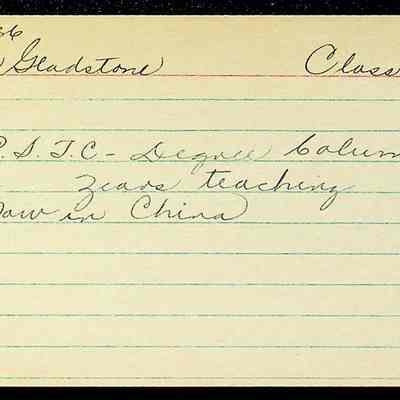 36
Gladstone Class
P.S.T.C - Degree Colum
Years teaching
Now in China